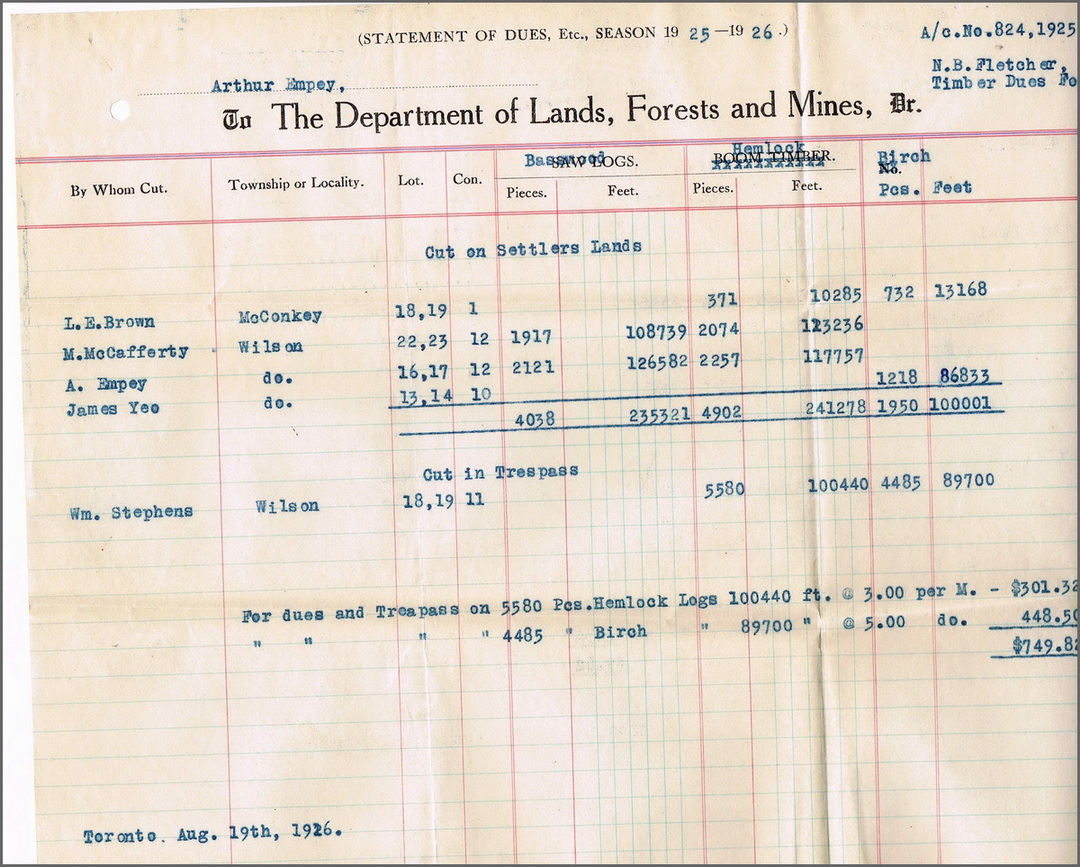 (STATEMENT OF DUES, Etc., SEASON 19 25 —19 26 .)
A/c.No.824,1925
N.B.Fletcher,
Timber Dues Fo
Arthur Empey,
To The Department of Lands, Forests and Mines, Dr.
By Whom Cut. Township or Locality. Lot. Con. Basswood SAW LOGS. Hemlock BOOM TIMBER. Birch No.
Pieces. Feet. Pieces. Feet. Pcs. Feet
Cut on Settlers Lands
L.E.Brown McConkey 18,19 1 371 10285 732 13168
M.McCafferty Wilson 22,23 12 1917 108739 2074 113236
A. Empey do. 16,17 12 2121 126582 2257 117757
James Yeo do. 13,14 10 1218 86833
4038 235321 4902 241278 1950 100001
Cut in Trespass
Wm. Stephens Wilson 18,19 11 5580 100440 4485 89700
For dues and Treapass on 5580 Pcs.Hemlock Logs 100440 ft. @ 3.00 per M. - $301.32
" " " " 4485 " Birch " 89700 " @ 5.00 do. 448.50
$749.82
Toronto. Aug. 19th, 1926.